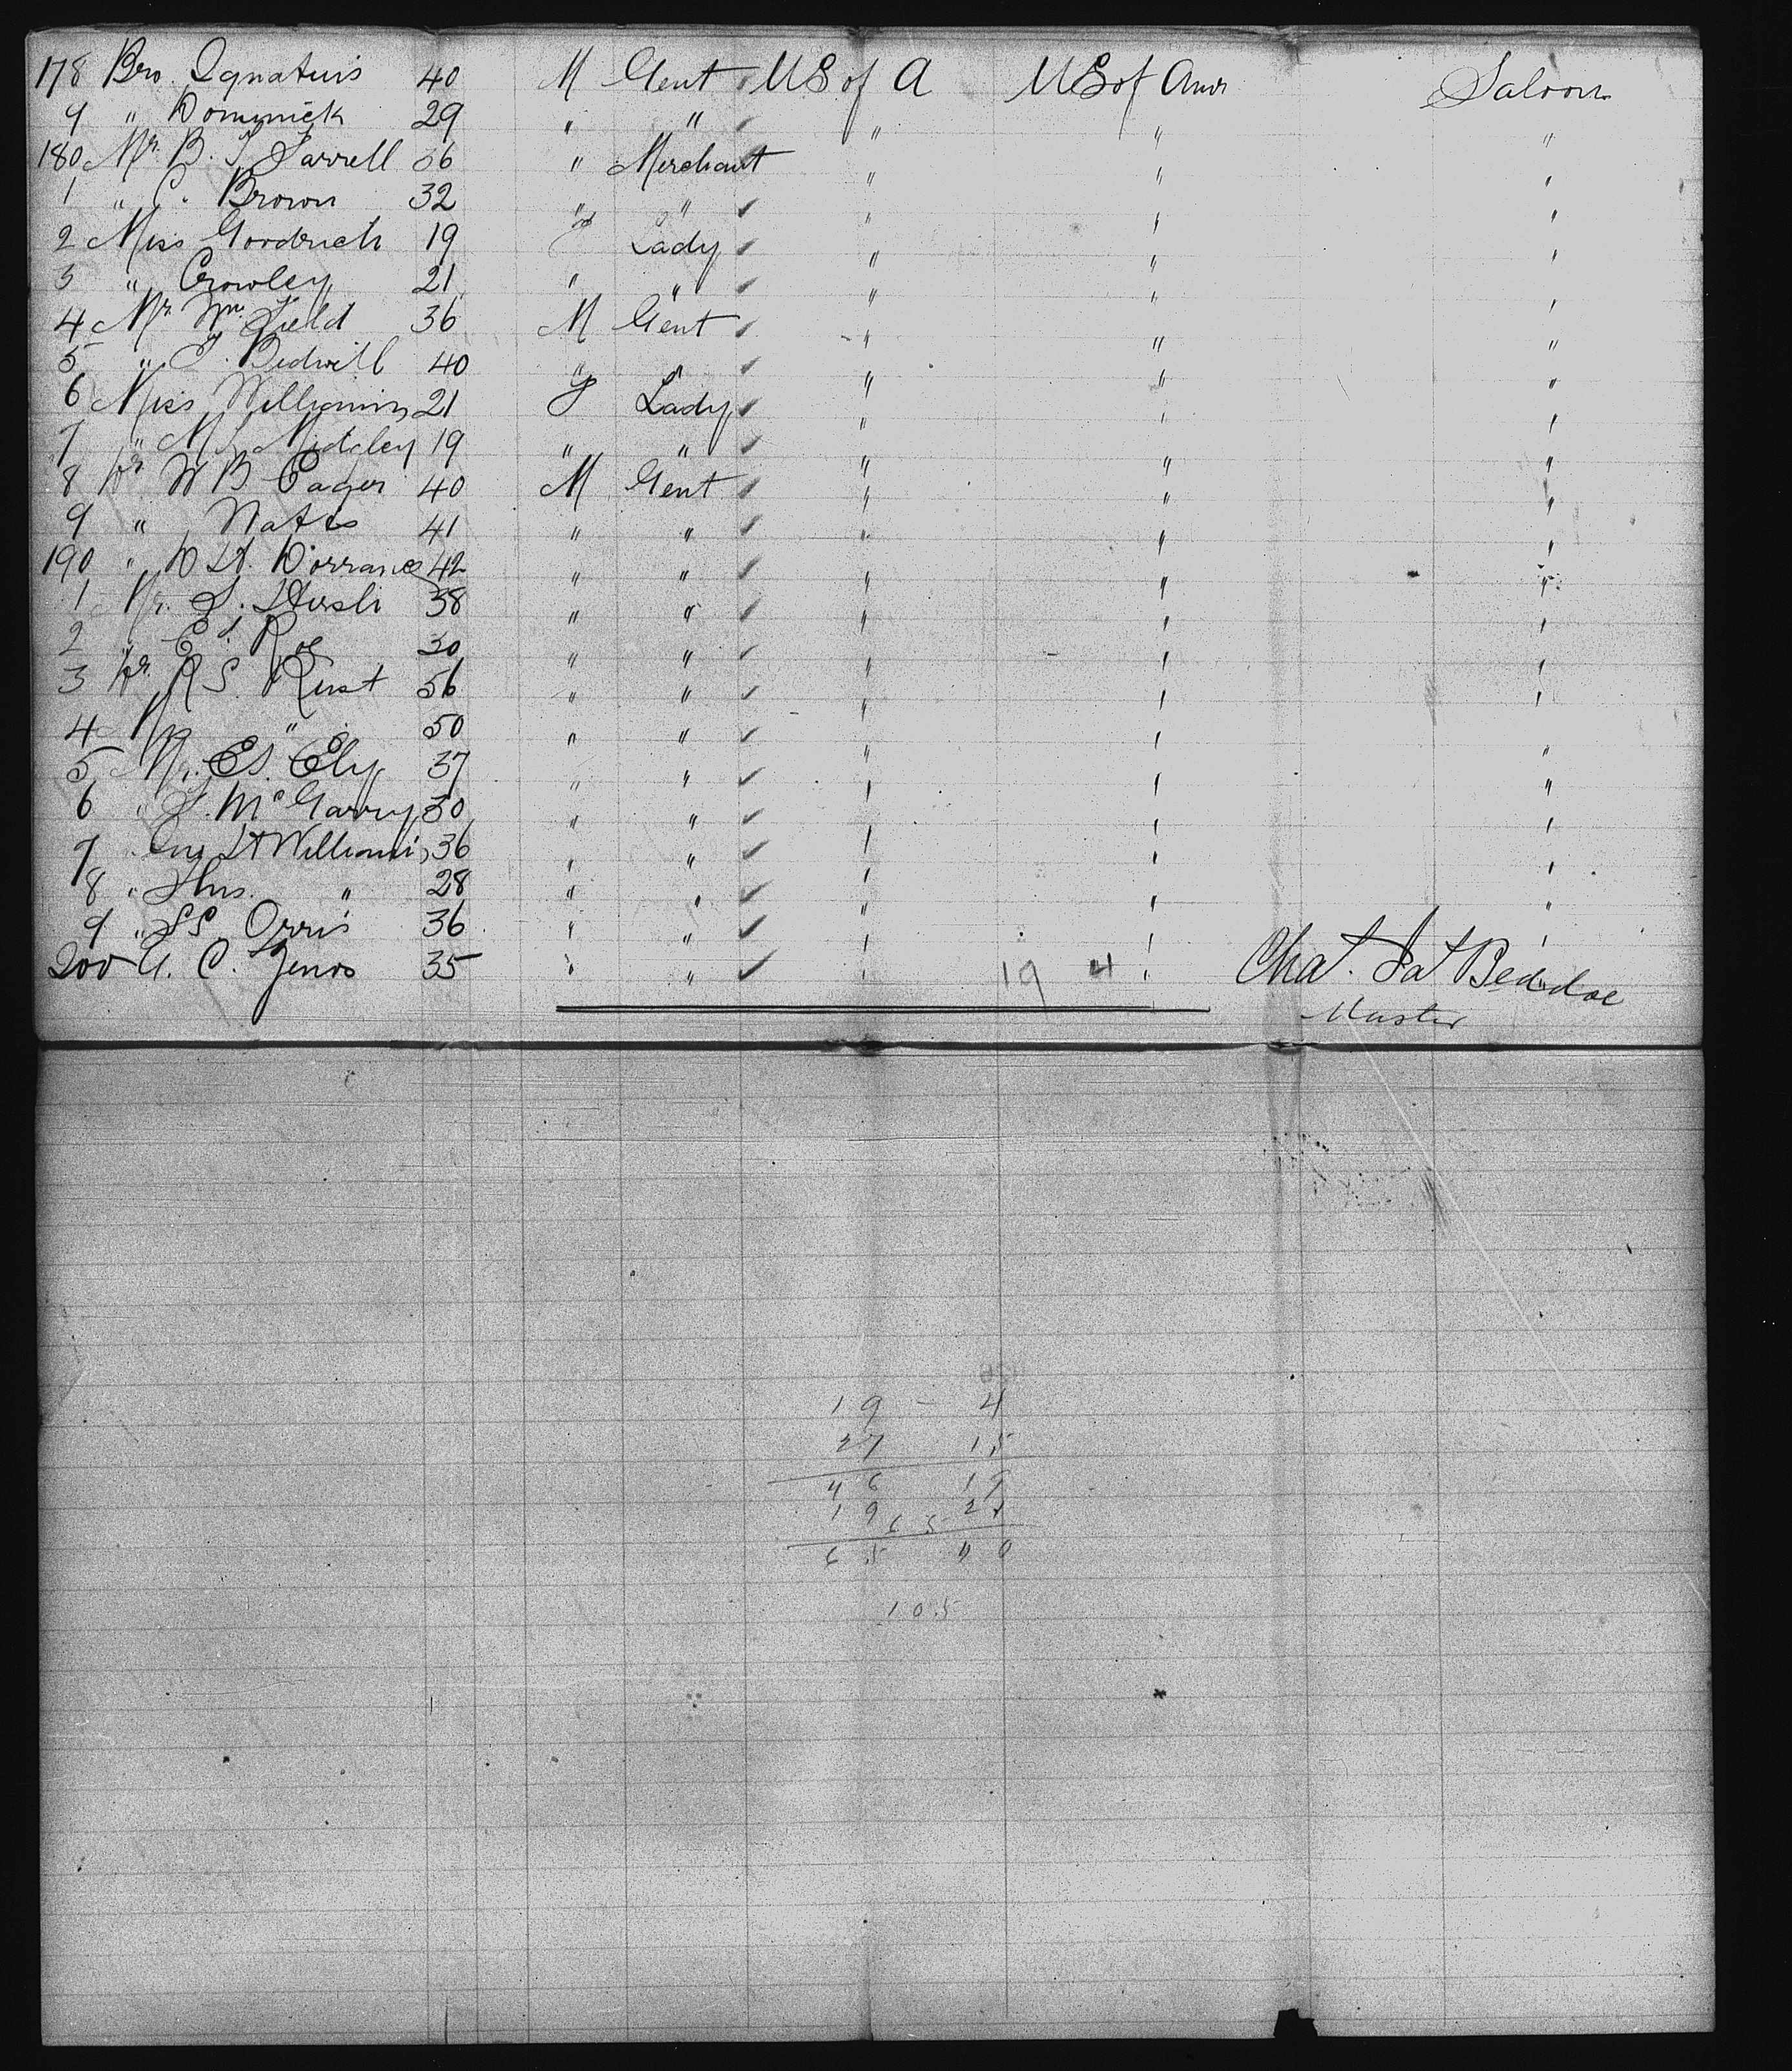 178 Bro. Ignatius 40 M Gent U S of A U S of Amr Saloon
9 " Dominick 29 " " " " "
180 Mr. B. J. Farrell 36 " Merchant " " "
1 " C. Brown 32 " " " " "
2 Miss Goodrich 19 F Lady " " "
3 " Crowley 21 " " " " "
4 Mr. Wm. Field 36 M Gent " " "
5 " J. Bidwill 40 " " " " "
6 Miss Williams 21 F Lady " " "
7 " M. Midgley 19 " " " " "
8 Dr. W B Eager 40 M Gent " " "
9 " Watts 41 " " " " "
190 " D H. Dorrance 42 " " " " "
1 Mr. S. 38 " " " " "
2 " E. Roe 30 " " " " "
3 Dr. R S. Rust 56 " " " " "
4 " 50 " " "
5 Mr. E S. Ely 37 " " " " "
6 " J. McGarry 30 " " " " "
7 H Williams 36 " " " " "
8 " Thos. " 28 " " " " "
9 " S S Orris 36 " " " " "
200 A. C. 35 " " " 19 4 "
Beddoe
Master
19 - 4
27 15
46 19
19 21
65
65 40
105